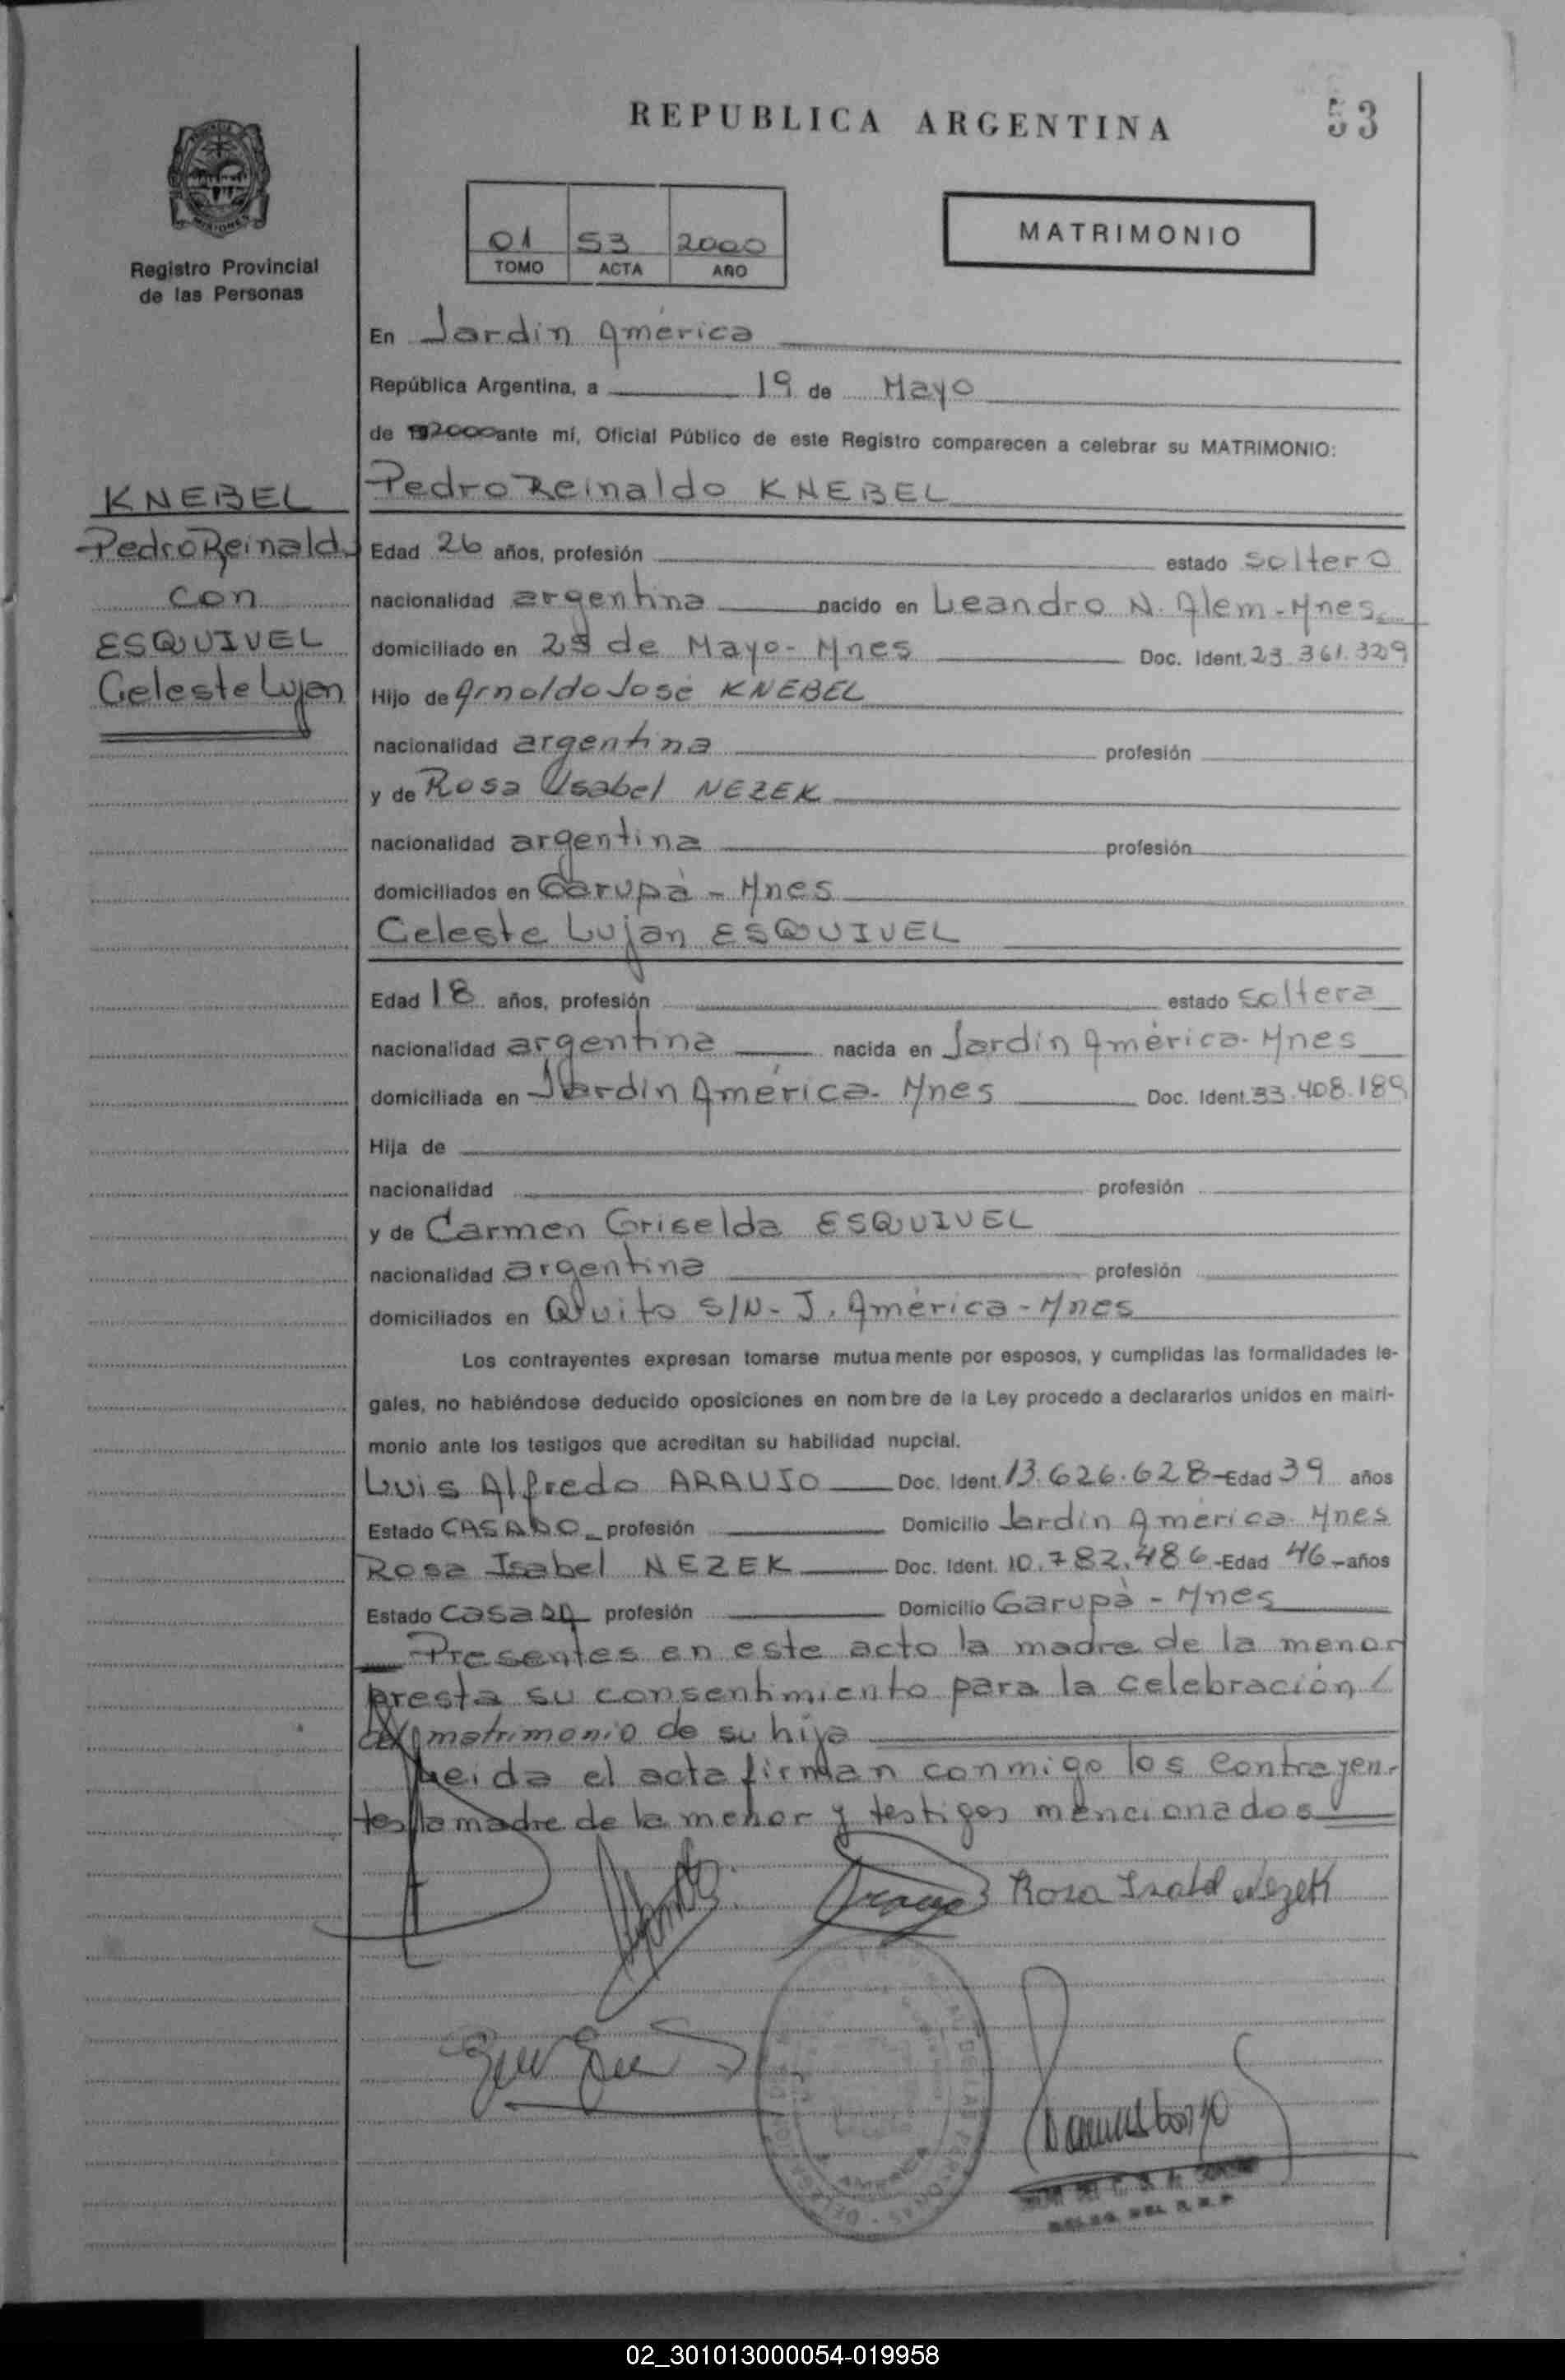 REPUBLICA ARGENTINA
53
Registro Provincial
de las Personas
01 53 2000
TOMO ACTA AÑO
MATRIMONIO
En Jardin América
República Argentina, a 19 de Mayo
de 2000 ante mí, Oficial Público de este Registro comparecen a celebrar su MATRIMONIO:
KNEBEL
Pedro Reinaldo
con
ESQUIVEL
Celeste Lujan
Pedro Reinaldo KNEBEL
Edad 26 años, profesión estado soltero
nacionalidad argentina nacido en Leandro N. Alem-Mnes
domiciliado en 25 de Mayo-Mnes Doc. Ident. 23.361.329
Hijo de Arnoldo José KNEBEL
nacionalidad argentina profesión
y de Rosa Isabel NEZEK
nacionalidad argentina profesión
domiciliados en Garupà - Mnes
Celeste Lujan ESQUIVEL
Edad 18 años, profesión estado soltera
nacionalidad argentina nacida en Jardin América-Mnes
domiciliada en Jardin América-Mnes Doc. Ident. 33.408.189
Hija de
nacionalidad profesión
y de Carmen Griselda ESQUIVEL
nacionalidad argentina profesión
domiciliados en Quito S/N - J. América - Mnes
Los contrayentes expresan tomarse mutuamente por esposos, y cumplidas las formalidades le-
gales, no habiéndose deducido oposiciones en nombre de la Ley procedo a declararlos unidos en matri-
monio ante los testigos que acreditan su habilidad nupcial.
Luis Alfredo ARAUJO Doc. Ident. 13.626.628 - Edad 39 años
Estado CASADO profesión Domicilio Jardin América-Mnes
Rosa Isabel NEZEK Doc. Ident. 10.782.486 - Edad 46 - años
Estado CasaDA profesión Domicilio Garupà - Mnes
Presentes en este acto la madre de la menor
presta su consentimiento para la celebración /
del matrimonio de su hija
Leida el acta firman conmigo los contrayen-
tes, la madre de la menor y testigos mencionados
Rosa Isabel Nezek
02_301013000054-019958